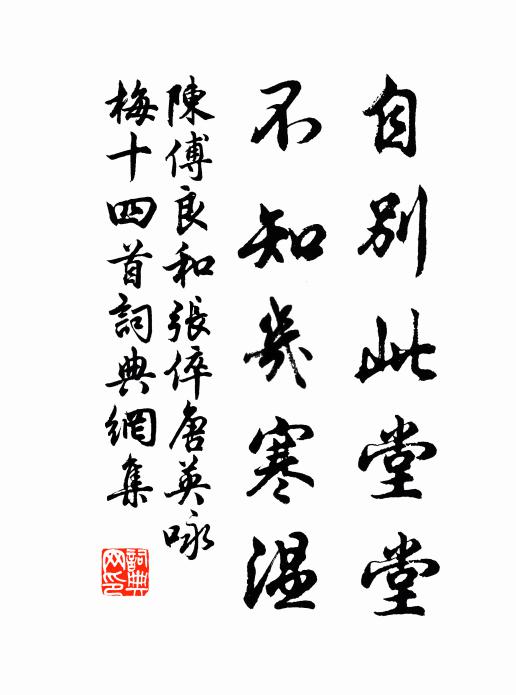 自別此堂堂
不知幾寒溫
陳傅良和張倅唐英咏
梅十四首詞典網集
詞典網印